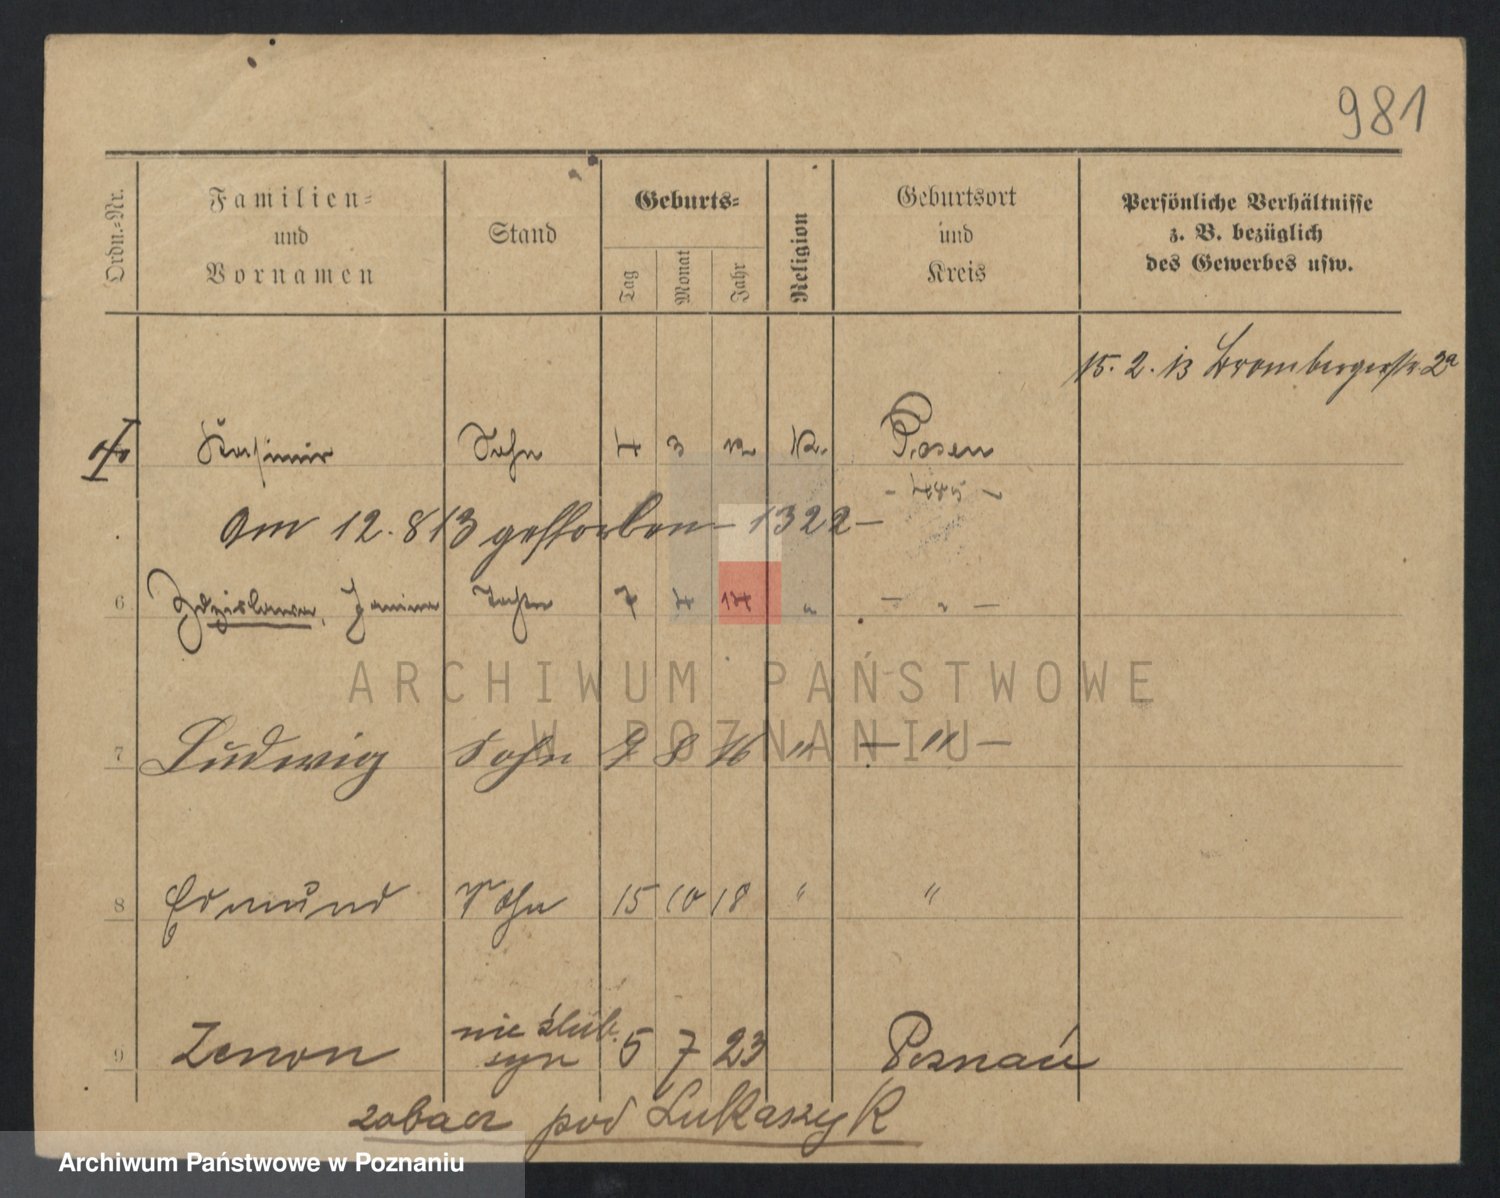 981
Ordn.-Nr.
Familien-
und
Vornamen
Stand
Geburts-
Tag
Monat
Jahr
Religion
Geburtsort
und
Kreis
Persönliche Verhältnisse
z. B. bezüglich
des Gewerbes usw.
15. 2. 13 Brombergerstr. 2a
Kasimir Sohn 4 3 12 K. Posen
Am 12. 8 13 gestorben - 1322 -
6 Zdzislawa, Janina Tochter 7 4 14 " — " —
ARCHIWUM PAŃSTWOWE
W POZNANIU
7 Ludwig Sohn 9 8 16 " — " —
8 Edmund Sohn 15 10 18 " "
9 Zenon nie ślub. syn 5 7 23 Poznań
zobacz pod Lukaszyk
Archiwum Państwowe w Poznaniu